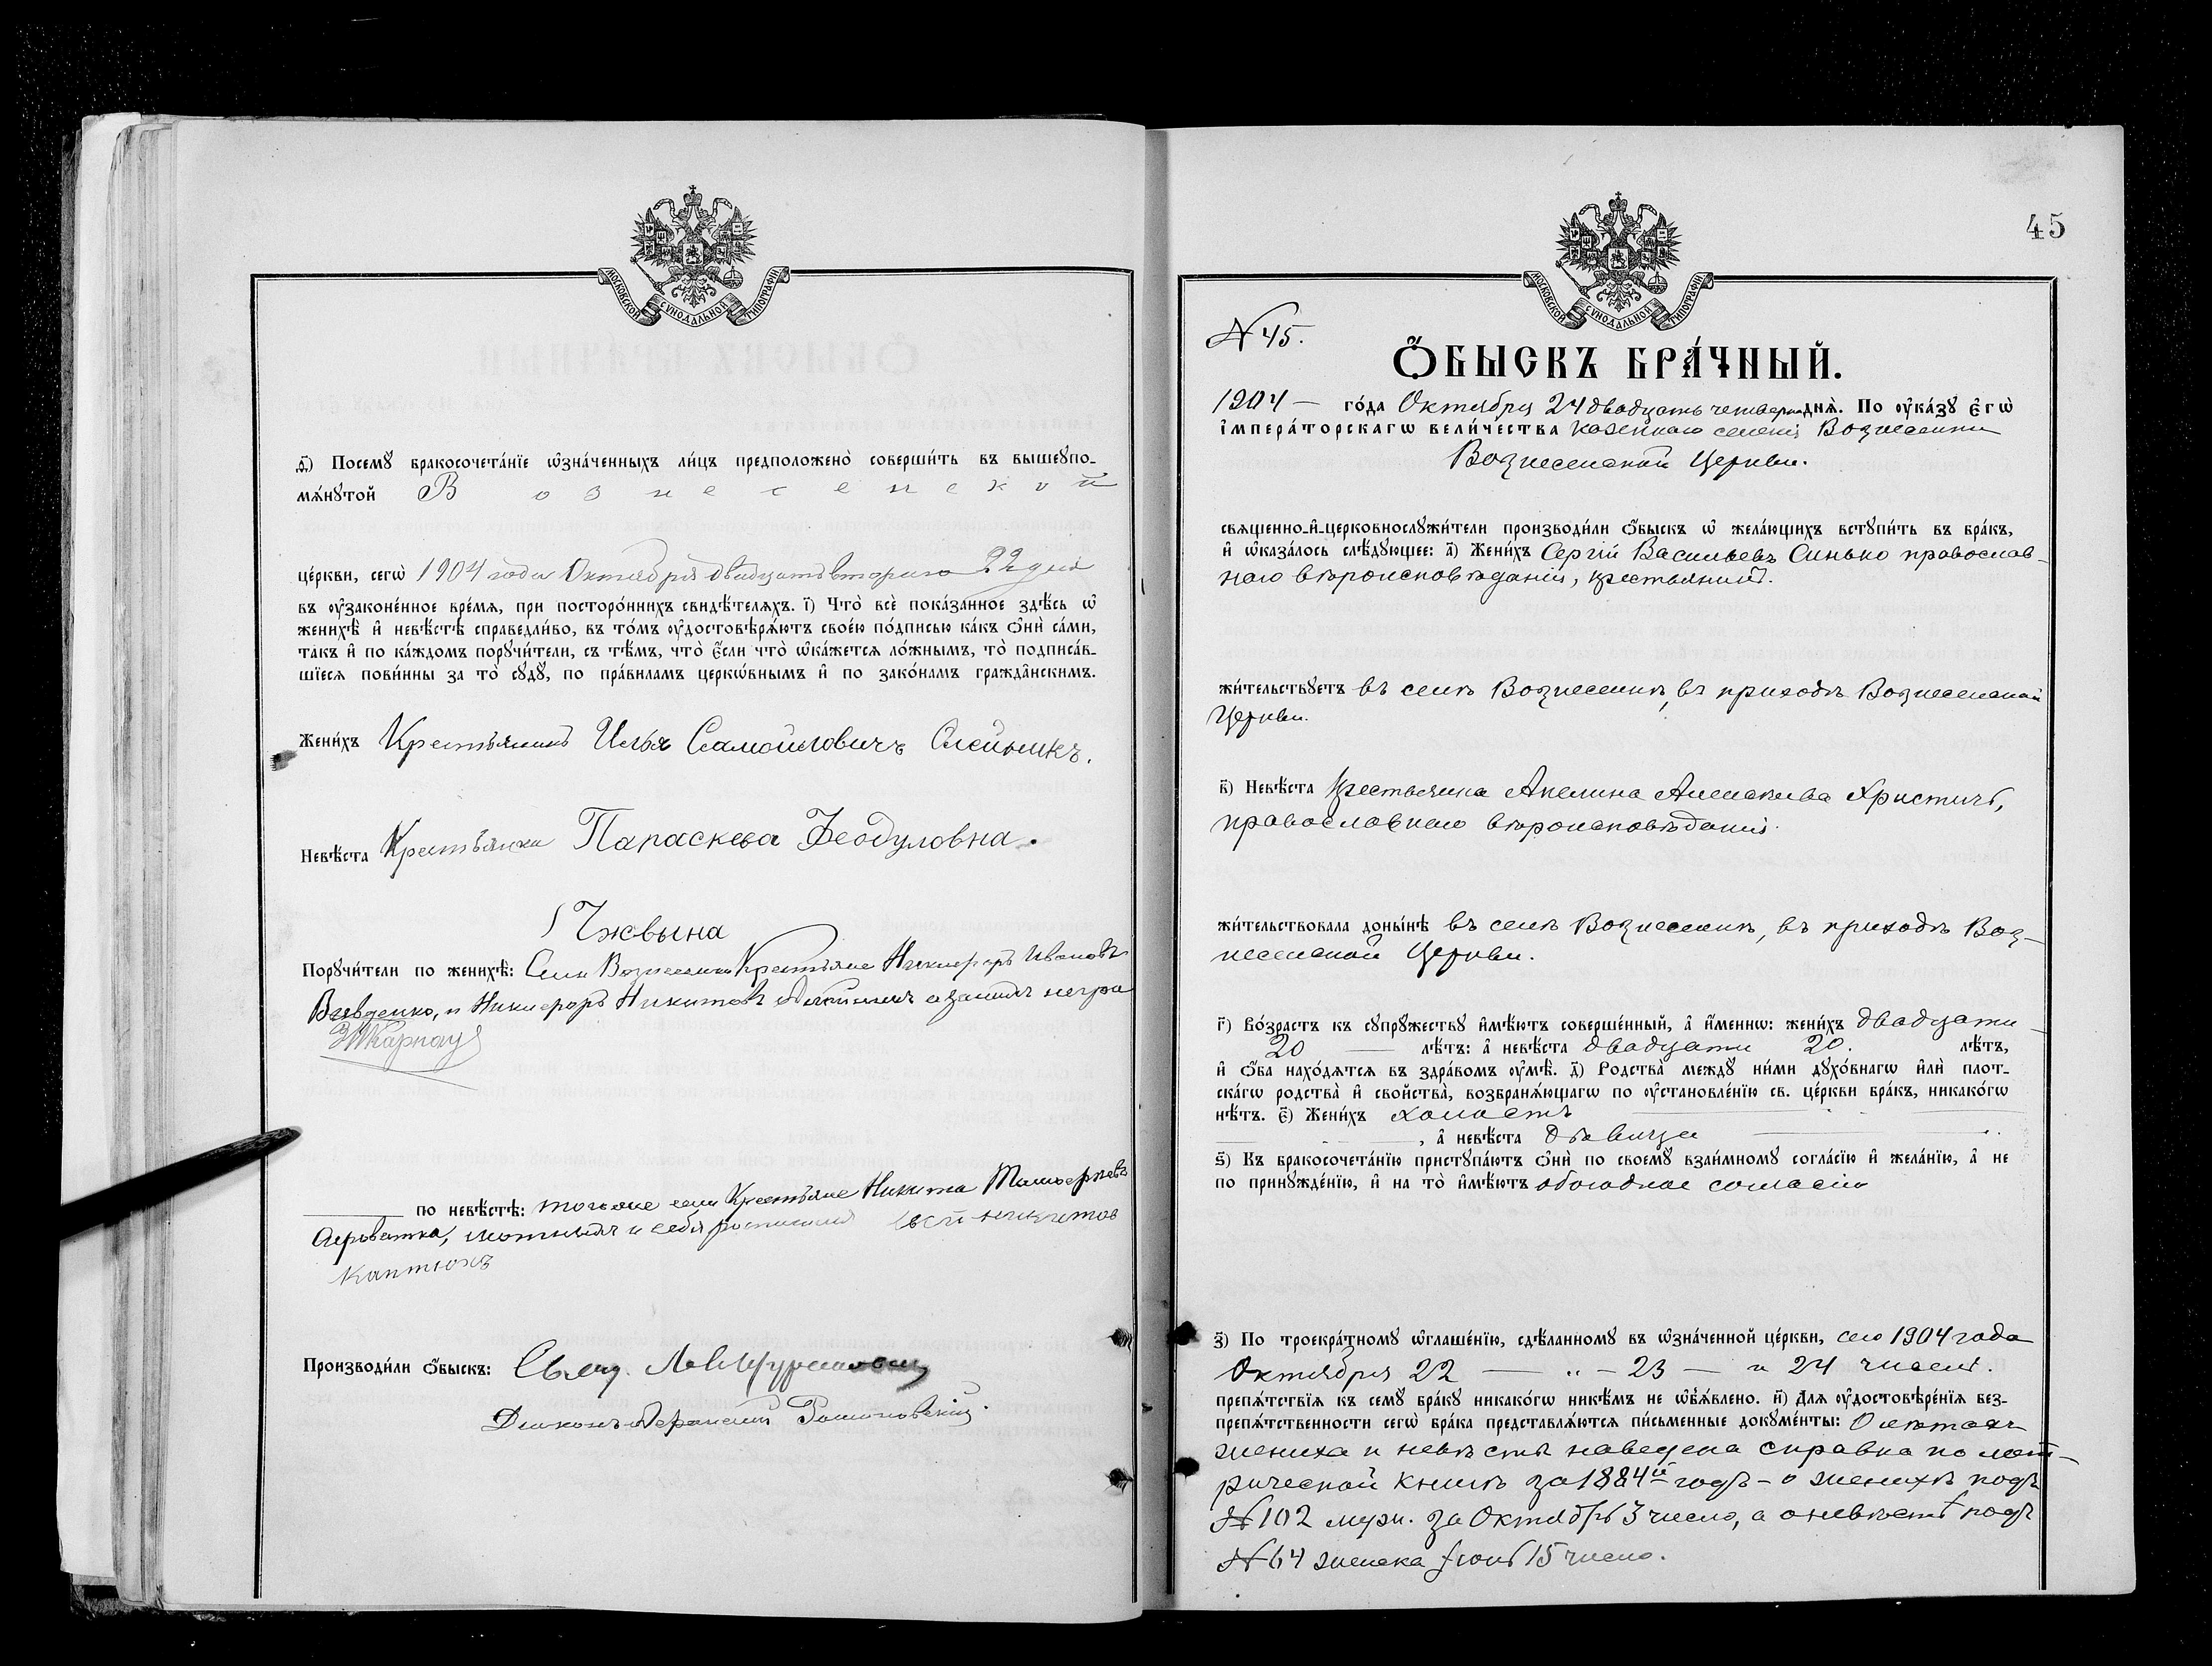 МОСКОВСКОЙ СѴНОДАЛЬНОЙ ТИПОГРАФІИ
ѳ҃) Посемꙋ̀ бракосочета́нїе ѡ҆зна́ченныхъ ли́цъ предположено̀ соверши́ть въ вышеꙋпо-
мѧ́нꙋтой Вознесенской
це́ркви, сегѡ̀ 1904 года Октября двадцать второго 22 дня
въ ᲂу҆законе́нное вре́мѧ, при посторо́ннихъ свидѣ́телѧхъ. і҃) Что̀ всѐ пока́занное здѣ́сь ѡ҆
женихѣ̀ и҆ невѣ́стѣ справедли́во, въ то́мъ ᲂу҆достовѣрѧ́ютъ свое́ю по́дписью ка́къ ѻ҆нѝ са́ми,
та́къ и҆ по ка́ждомъ порꙋчи́тели, съ тѣ́мъ, что̀ є҆́сли что̀ ѡ҆ка́жетсѧ ло́жнымъ, то̀ подписа́в-
шїесѧ пови́нны за то̀ сꙋдꙋ̀, по пра́виламъ церкѡ́внымъ и҆ по зако́намъ гражда̑нскимъ.
Жени́хъ Крестьянинъ Илья Самойловичъ Олейникъ.
Невѣ́ста Крестьянка Параскева Феодуловна.
Чжвына
Порꙋчи́тели по женихѣ̀: Села Вознесенки Крестьяне Никифоръ Ивановъ
Вивденко, и Никифоръ Никитовъ
Шкарпоу
по невѣ́стѣ: того же села Крестьяне Никита
и себя
Каптюхъ
Производи́ли ѻ҆́быскъ: Свящ.
Диаконъ Романовскій.
45
МОСКОВСКОЙ СѴНОДАЛЬНОЙ ТИПОГРАФІИ
№ 45.
Ѻ҆́БЫСКЪ БРА́ЧНЫЙ.
1904 — го́да Октября 24 двадцать четвертого днѧ̀. По ᲂу҆ка́зꙋ є҆гѡ̀
і҆мпера́торскагѡ вели́чества казеннаго селенія Вознесенки
Вознесенской Церкви.
свѧщенно-и҆-церковнослꙋжи́тели производи́ли ѻ҆́быскъ ѡ҆ жела́ющихъ встꙋпи́ть въ бра́къ,
и҆ ѡ҆каза́лось слѣ́дꙋющее: а҃) Жени́хъ Сергій Васильевъ Синько православ-
наго вѣроисповѣданія, крестьянинъ.
жи́тельствꙋетъ въ селѣ Вознесенкѣ, въ приходѣ Вознесенской
Церкви.
в҃) Невѣ́ста Крестьянка Акелина Алексѣева Христичъ,
православнаго вѣроисповѣданія.
жи́тельствовала доны́нѣ въ селѣ Вознесенкѣ, въ приходѣ Воз-
несенской Церкви.
г҃) Во́зрастъ къ сꙋпрꙋ́жествꙋ и҆мѣ́ютъ соверше́нный, а҆ и҆́меннѡ: жени́хъ двадцати
20 — лѣ́тъ: а҆ невѣ́ста двадцати 20. лѣ́тъ,
и҆ ѻ҆́ба нахо́дѧтсѧ въ здра́вомъ ᲂу҆мѣ̀. д҃) Родства̀ междꙋ̀ ни́ми дꙋхо́внагѡ и҆лѝ плот-
ска́гѡ родства̀ и҆ свойства̀, возбранѧ́ющагѡ по ᲂу҆становле́нїю св. це́ркви бра́къ, никако́гѡ
нѣ́тъ. є҃) Жени́хъ холостъ
, а҆ невѣ́ста дѣвица
ѕ҃) Къ бракосочета́нїю пристꙋпа́ютъ ѻ҆нѝ по своемꙋ̀ взаи́мномꙋ согла́сїю и҆ жела́нїю, а҆ не
по принꙋжде́нїю, и҆ на то̀ и҆мѣ́ютъ обоюдное согласіе
з҃) По троекра́тномꙋ ѡ҆глаше́нїю, сдѣ́ланномꙋ въ ѡ҆зна́ченной це́ркви, сего 1904 года
Октября 22 — „ — 23 — и 24 чиселъ.
препѧ́тствїѧ къ семꙋ̀ бра́кꙋ никако́гѡ никѣ́мъ не ѡ҆б̾ѧ́влено. и҃) Длѧ ᲂу҆достовѣре́нїѧ без-
препѧ́тственности сегѡ̀ бра́ка представлѧ́ютсѧ пи́сьменные докꙋме́нты: О лѣтахъ
жениха и невѣсты наведена справка по мет-
рической книгѣ за 1884й годъ - о женихѣ подъ
№ 102 муж. за Октябрь 3 число, а о невѣстѣ подъ
№ 64 женска Іюнь 15 число.